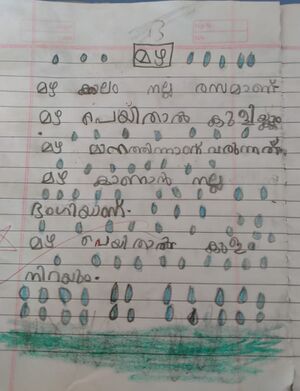 13
മഴ
മഴ ക്കാലം നല്ല രസമാണ്
മഴ പെയ്താൽ കുളിക്കും
മഴ മാനത്തിന്നാണ് വരുന്നത്
മഴ കാണാൻ നല്ല
ഭംഗിയാണ്.
മഴ പെയ്താൽ കുളം
നിറയും.